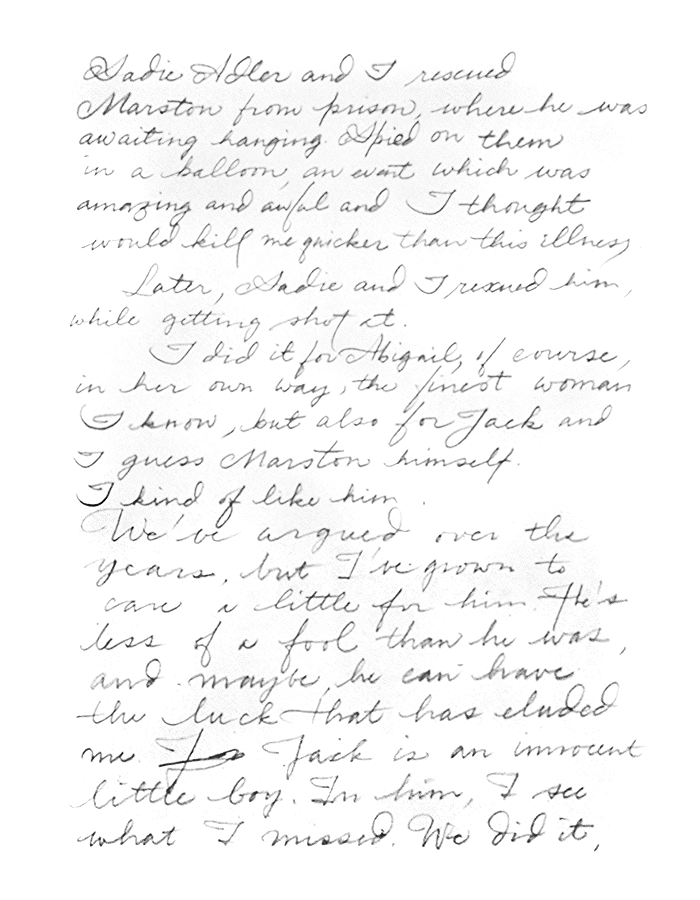 Sadie Adler and I rescued
Marston from prison, where he was
awaiting hanging. Spied on them
in a balloon, an event which was
amazing and awful and I thought
would kill me quicker than this illness,
Later, Sadie and I rescued him,
while getting shot at.
I did it for Abigail, of course,
in her own way, the finest woman
I know, but also for Jack and
I guess Marston himself.
I kind of like him.
We've argued over the
years, but I've grown to
care a little for him. He's
less of a fool than he was,
and maybe he can have
the luck that has eluded
me. Jack is an innocent
little boy. In him, I see
what I missed. We did it,